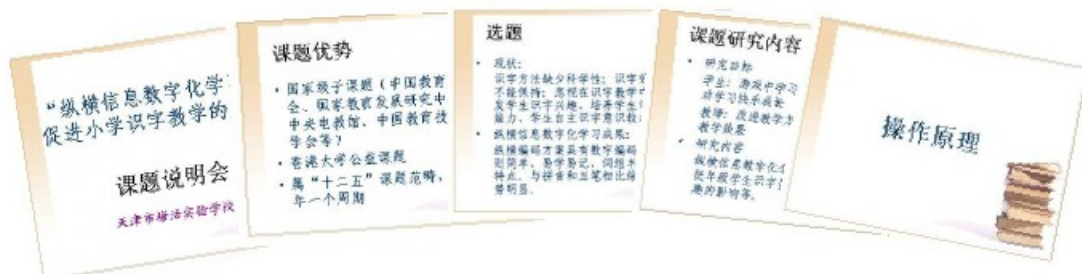 “纵横信息数字化学
促进小学识字教学的
课题说明会
天津市塘沽实验学校
课题优势
• 国家级子课题（中国教育
会、国家教育发展研究中
中央电教馆、中国教育技
学会等？
• 香港大学公益课题
• 属“十二五”课题范畴，
年一个周期
选题
• 现状：
识字方法缺少科学性；识字
不能保持；忽视在识字教学
发学生识字兴趣、培养学生
能力、学生自主识字意识较
• 纵横信息数字化学习成果：
纵横编码方案具有数字编码
则简单、易学易记、词组丰
特点，与拼音和五笔相比
势明显。
课题研究内容
• 研究目标
学生：游戏中学习
动学习快乐成长
教师：改进教学方
教学效果
• 研究内容
纵横信息数字化
低年级学生识字
趣的影响等。
操作原理